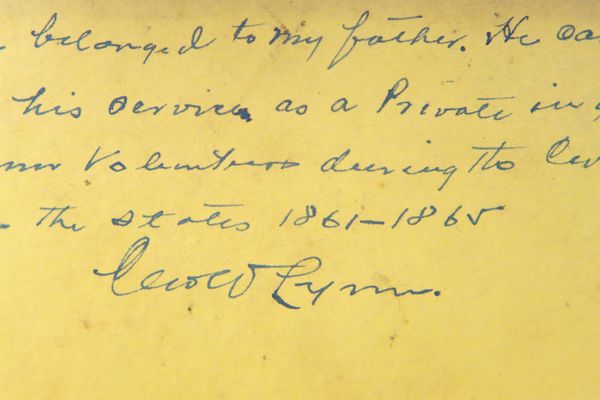 belonged to my father. He
his service as a Private in
Volunteers during the
the states 1861-1865
Geo W Lynn.